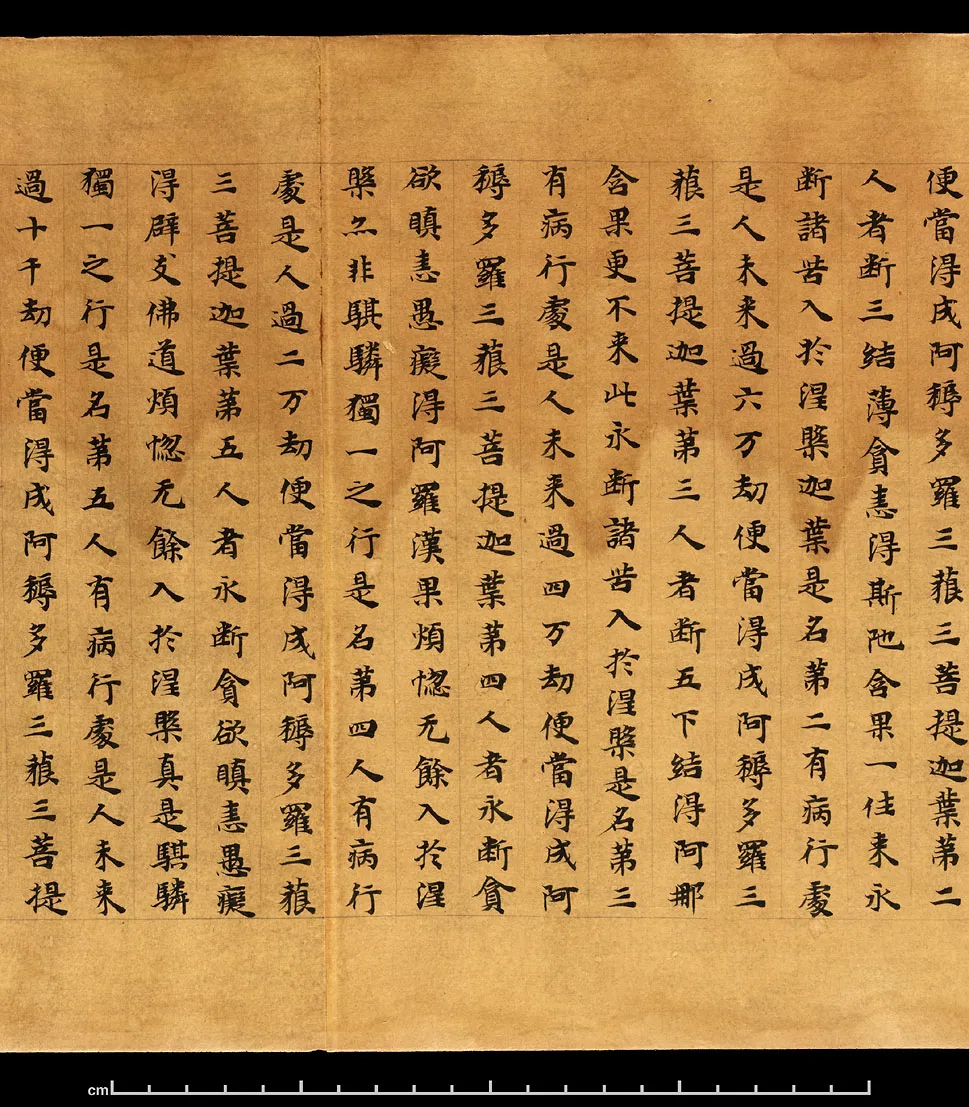 便當得成阿耨多羅三藐三菩提迦葉第二
人者断三結薄貪恚得斯陁含果一往来永
断諸苦入於涅槃迦葉是名第二有病行處
是人未来過六万劫便當得成阿耨多羅三
藐三菩提迦葉第三人者断五下結得阿那
含果更不来此永断諸苦入於涅槃是名第三
有病行處是人未来過四万劫便當得成阿
耨多羅三藐三菩提迦葉第四人者永断貪
欲瞋恚愚癡得阿羅漢果煩惚无餘入於涅
槃亦非騏驎獨一之行是名第四人有病行
處是人過二万劫便當得成阿耨多羅三藐
三菩提迦葉第五人者永断貪欲瞋恚愚癡
得辟支佛道煩惚无餘入於涅槃真是騏驎
獨一之行是名第五人有病行處是人未来
過十千劫便當得成阿耨多羅三藐三菩提
cm